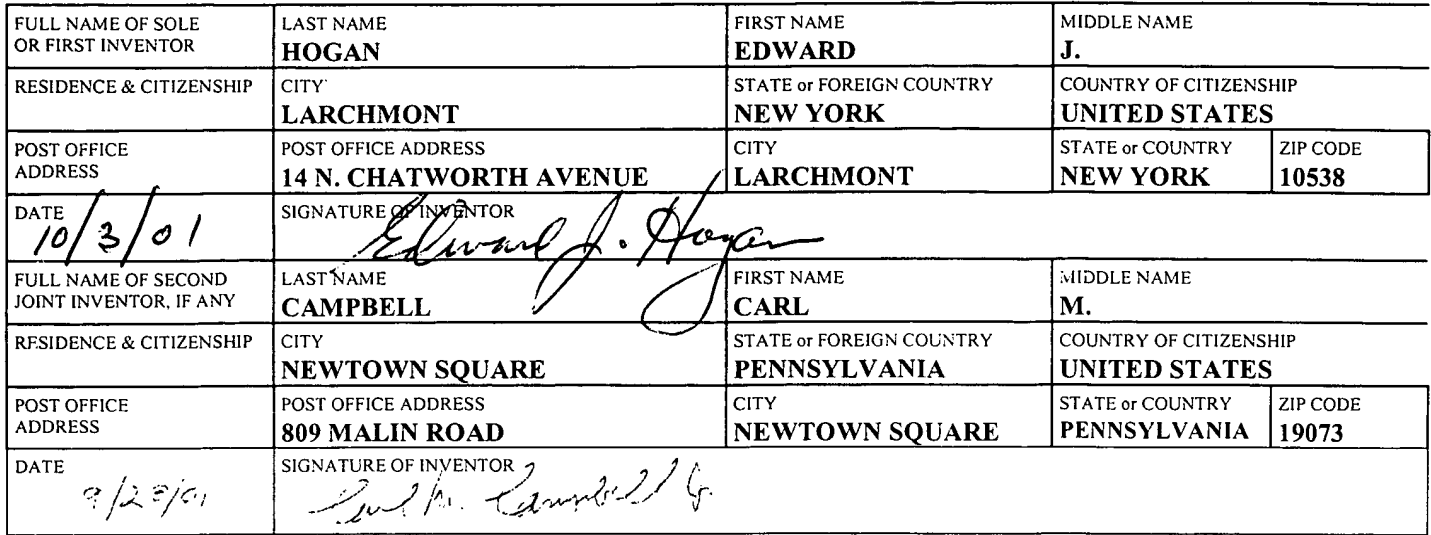 FULL NAME OF SOLE OR FIRST INVENTOR
LAST NAME
HOGAN
FIRST NAME
EDWARD
MIDDLE NAME
J.
RESIDENCE & CITIZENSHIP
CITY
LARCHMONT
STATE or FOREIGN COUNTRY
NEW YORK
COUNTRY OF CITIZENSHIP
UNITED STATES
POST OFFICE ADDRESS
POST OFFICE ADDRESS
14 N. CHATWORTH AVENUE
CITY
LARCHMONT
STATE or COUNTRY
NEW YORK
ZIP CODE
10538
DATE
10/3/01
SIGNATURE OF INVENTOR
Edward J. Hogan
FULL NAME OF SECOND JOINT INVENTOR, IF ANY
LAST NAME
CAMPBELL
FIRST NAME
CARL
MIDDLE NAME
M.
RESIDENCE & CITIZENSHIP
CITY
NEWTOWN SQUARE
STATE or FOREIGN COUNTRY
PENNSYLVANIA
COUNTRY OF CITIZENSHIP
UNITED STATES
POST OFFICE ADDRESS
POST OFFICE ADDRESS
809 MALIN ROAD
CITY
NEWTOWN SQUARE
STATE or COUNTRY
PENNSYLVANIA
ZIP CODE
19073
DATE
SIGNATURE OF INVENTOR
Carl M. Campbell Jr.